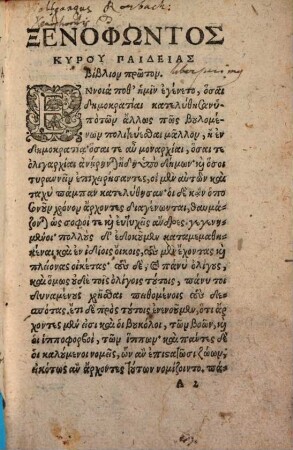 Wolfgangus
ΞΕΝΟΦΩΝΤΟΣ
ΚΥΡΟΥ ΠΑΙΔΕΙΑΣ
Βιβλίον πρῶτον.
ΕΝνοιά ποθ' ἡμῖν ἐγένετο, ὅσαι
δημοκρατίαι κατελύθησαν ὑ-
πὸ τῶν ἄλλως πως βουλομέ-
νων πολιτεύεσθαι μᾶλλον, ἢ ἐν
δημοκρατίᾳ· ὅσαι τε αὖ μοναρχίαι, ὅσαι
τε ὀλιγαρχίαι ἀνῄρηνται ἤδη ὑπὸ δήμων· καὶ ὅσοι
τυραννεῖν ἐπιχειρήσαντες, οἱ μὲν αὐτῶν καὶ
ταχὺ πάμπαν κατελύθησαν· οἱ δὲ κἂν ὁπο
σονοῦν χρόνον ἄρχοντες διαγένωνται, θαυμά-
ζονται ὡς σοφοί τε καὶ εὐτυχεῖς ἄνδρες γεγενη-
μένοι· πολλοὺς δ' ἐδοκοῦμεν καταμεμαθη-
κέναι καὶ ἐν ἰδίοις οἴκοις, τοὺς μὲν ἔχοντας καὶ
πλείονας οἰκέτας· τοὺς δὲ, καὶ πάνυ ὀλίγους,
καὶ ὅμως οὐδὲ τοῖς ὀλίγοις τούτοις, πάνυ τοι
δυναμένους χρῆσθαι πειθομένοις τοὺς δε-
σπότας. ἔτι δὲ πρὸς τούτοις ἐνενοοῦμεν, ὅτι ἄρ-
χοντες μέν εἰσι καὶ οἱ βουκόλοι, τῶν βοῶν, καὶ
οἱ ἱπποφορβοὶ, τῶν ἵππων· καὶ πάντες δὲ
οἱ καλούμενοι νομεῖς, ὧν ἂν ἐπιστατῶσι ζώων,
εἰκότως ἂν ἄρχοντες τούτων νομίζοιντο. πά-
A 2